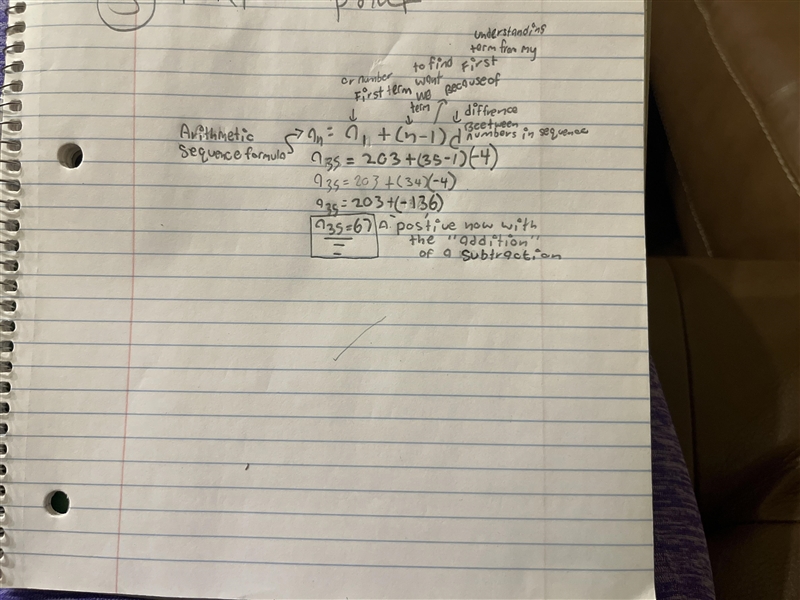 3
understanding
term from my
to find First
or number want Because of
First term we
term diffrence
Beetween
numbers in sequence
Arithmetic
sequence formula
an = a1 + (n-1)d
a35 = 203+(35-1)(-4)
a35 = 203+(34)(-4)
a35 = 203+(-136)
a35=67 A positive now with
the "addition"
of a subtraction